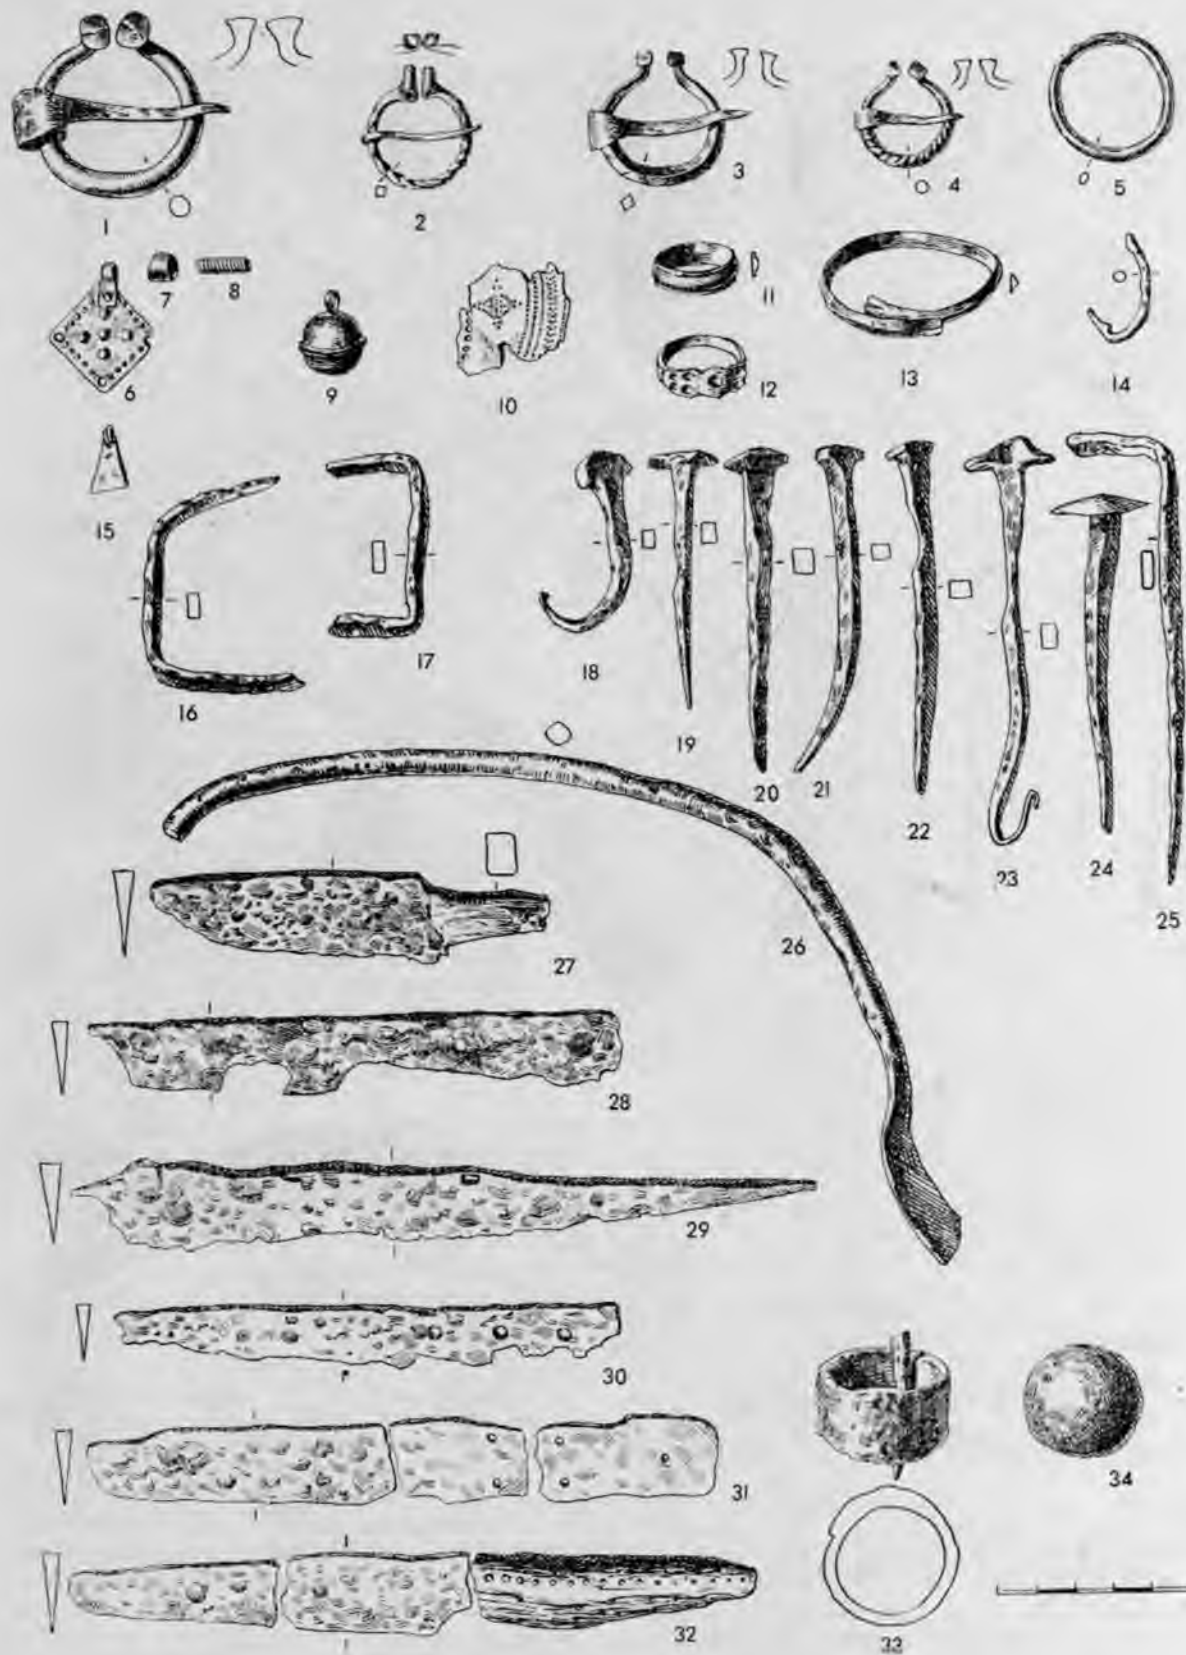 1 2 3 4 5
6 7 8 9 10 11 12 13 14
15 16 17 18 19 20 21 22 23 24 25
26
27
28
29
30
31
32 33 34